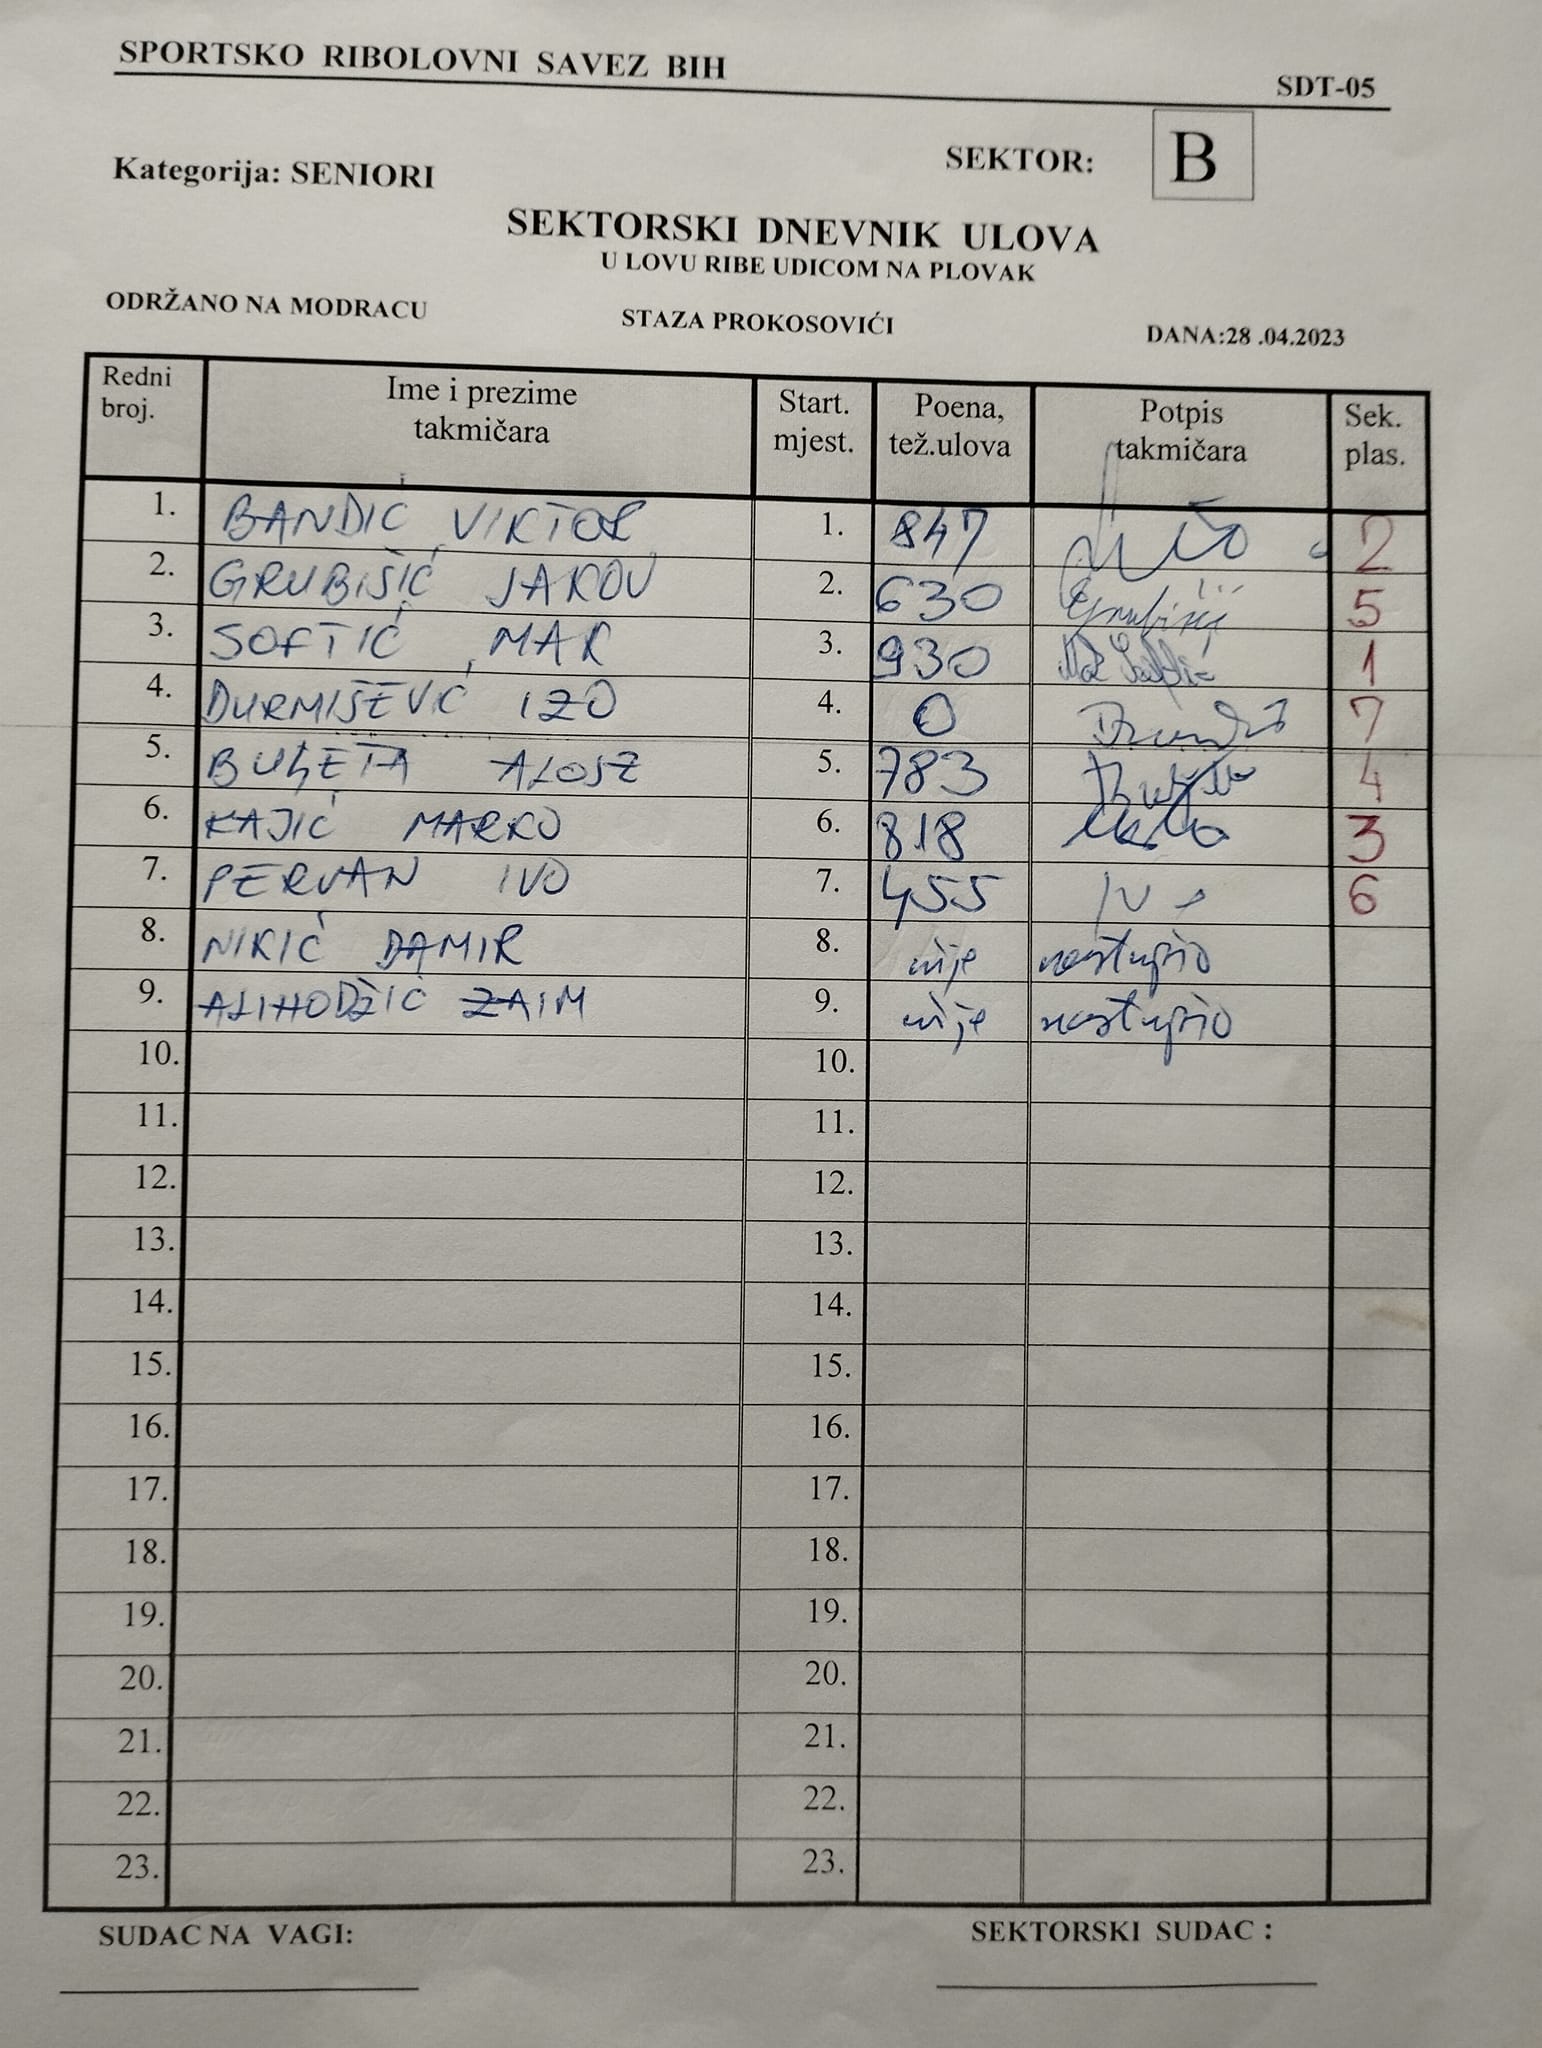 SPORTSKO RIBOLOVNI SAVEZ BIH
SDT-05
Kategorija: SENIORI
SEKTOR: B
SEKTORSKI DNEVNIK ULOVA
U LOVU RIBE UDICOM NA PLOVAK
ODRŽANO NA MODRACU STAZA PROKOSOVIĆI DANA:28 .04.2023
Redni broj. Ime i prezime takmičara Start. mjest. Poena, tež.ulova Potpis takmičara Sek. plas.
1. BANDIĆ VIKTOR 1. 847 2
2. GRUBIŠIĆ JAKOV 2. 630 Grubišić 5
3. SOFTIĆ MAR 3. 930 1
4. DURMIŠEVIĆ IZO 4. 0 7
5. BULJETA ALOJZ 5. 783 4
6. KAJIĆ MARKO 6. 818 3
7. PERVAN IVO 7. 455 Ivo 6
8. NIKIĆ DAMIR 8. nije nastupio
9. ALIHODŽIĆ ZAIM 9. nije nastupio
10. 10.
11. 11.
12. 12.
13. 13.
14. 14.
15. 15.
16. 16.
17. 17.
18. 18.
19. 19.
20. 20.
21. 21.
22. 22.
23. 23.
SUDAC NA VAGI: SEKTORSKI SUDAC :